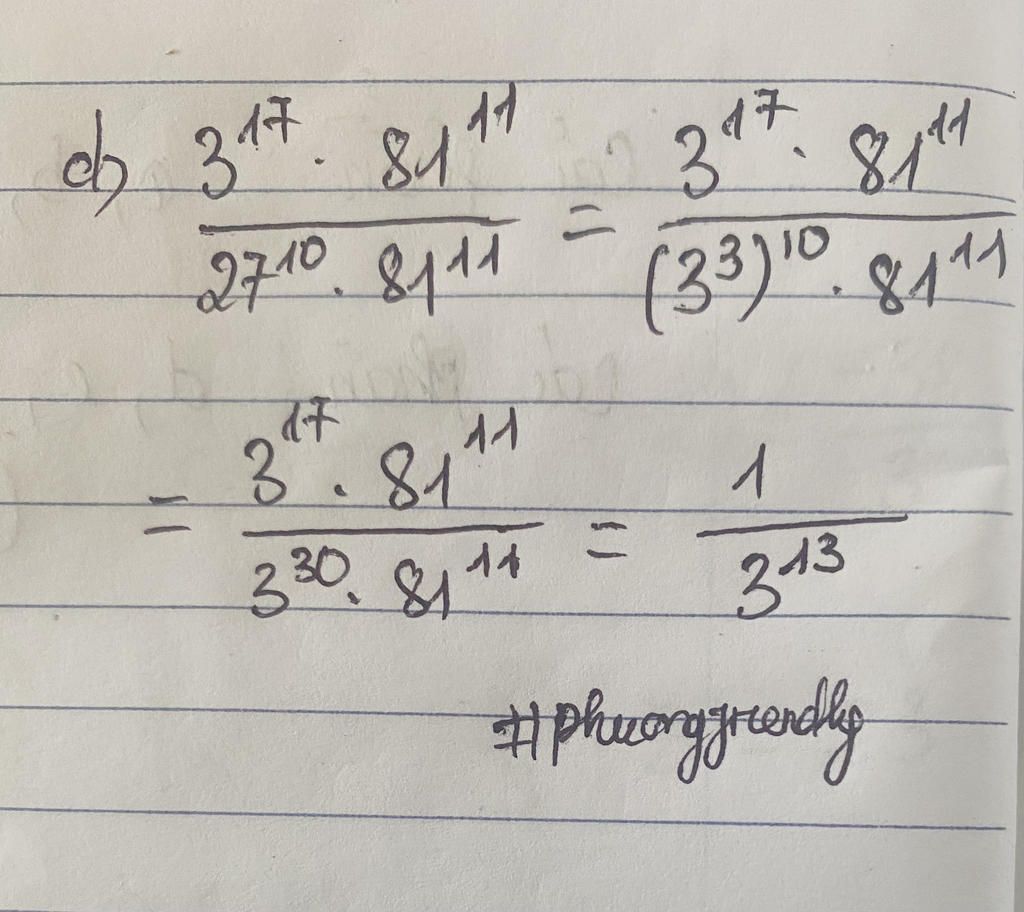 d) \frac{3^{17} \cdot 81^{11}}{27^{10} \cdot 81^{11}} = \frac{3^{17} \cdot 81^{11}}{(3^3)^{10} \cdot 81^{11}}
= \frac{3^{17} \cdot 81^{11}}{3^{30} \cdot 81^{11}} = \frac{1}{3^{13}}
#phuonggfriendly